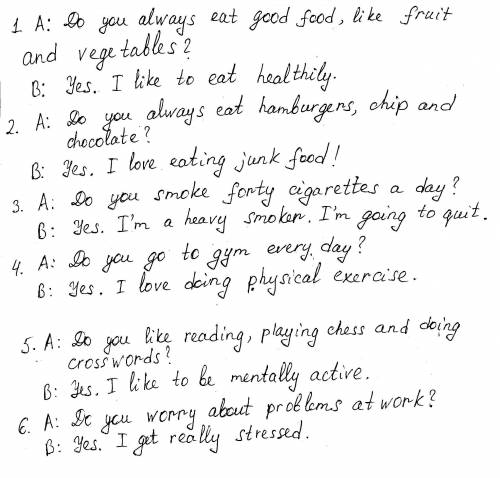 1. A: Do you always eat good food, like fruit
and vegetables?
B: Yes. I like to eat healthily.
2. A: Do you always eat hamburgers, chip and
chocolate?
B: Yes. I love eating junk food!
3. A: Do you smoke forty cigarettes a day?
B: Yes. I'm a heavy smoker. I'm going to quit.
4. A: Do you go to gym every day?
B: Yes. I love doing physical exercise.
5. A: Do you like reading, playing chess and doing
crosswords?
B: Yes. I like to be mentally active.
6. A: Do you worry about problems at work?
B: Yes. I get really stressed.